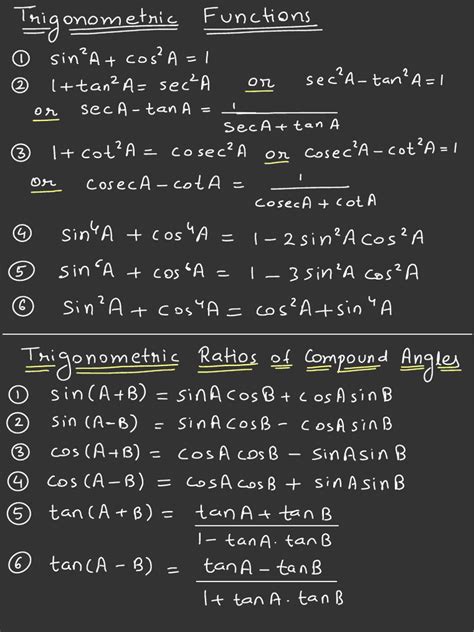 Trigonometric Functions
① sin²A + cos²A = 1
② 1 + tan²A = sec²A or sec²A - tan²A = 1
or secA - tanA = 1/(secA + tanA)
③ 1 + cot²A = cosec²A or cosec²A - cot²A = 1
or cosecA - cotA = 1/(cosecA + cotA)
④ sin⁴A + cos⁴A = 1 - 2sin²A cos²A
⑤ sin⁶A + cos⁶A = 1 - 3sin²A cos²A
⑥ sin²A + cos⁴A = cos²A + sin⁴A
Trigonometric Ratios of Compound Angles
① sin(A+B) = sinA cosB + cosA sinB
② sin(A-B) = sinA cosB - cosA sinB
③ cos(A+B) = cosA cosB - sinA sinB
④ cos(A-B) = cosA cosB + sinA sinB
⑤ tan(A+B) = (tanA + tanB)/(1 - tanA . tanB)
⑥ tan(A-B) = (tanA - tanB)/(1 + tanA . tanB)